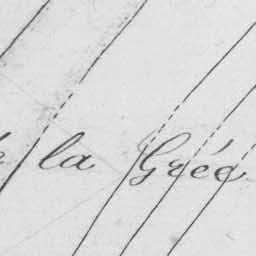 la Grée